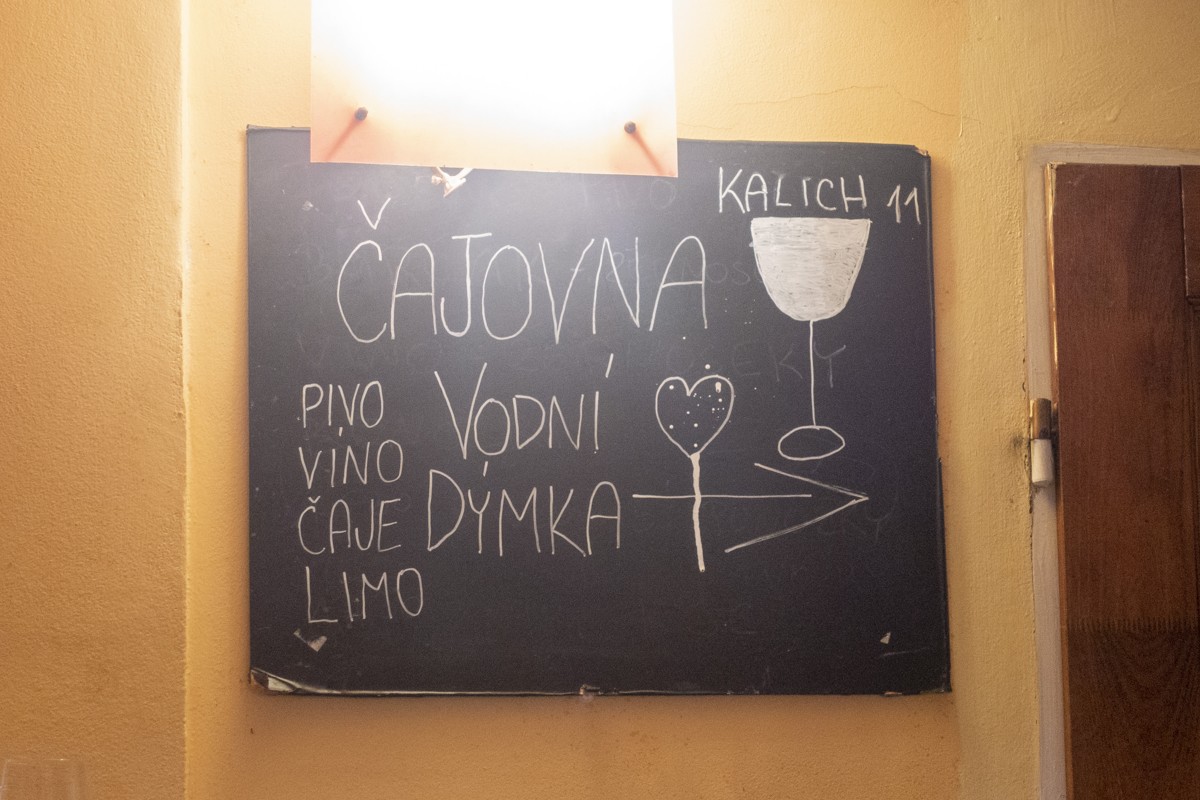 KALICH 11
ČAJOVNA
VODNÍ
DÝMKA
PIVO
VÍNO
ČAJE
LIMO